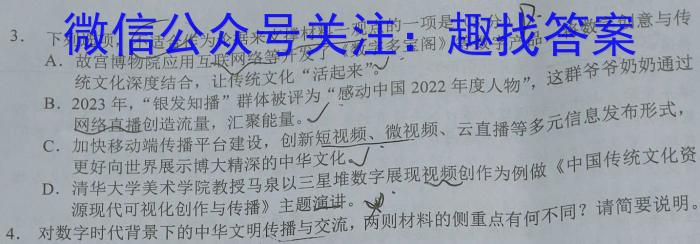 微信公众号关注：趣找答案
3. 下
A. 故宫博物院应用互联网络等开发了《数字多宝阁》
统文化深度结合，让传统文化“活起来”。
B. 2023年，“银发知播”群体被评为“感动中国2022年度人物”，这群爷爷奶奶通过
网络直播创造流量，汇聚能量。
C. 加快移动端传播平台建设，创新短视频、微视频、云直播等多元信息发布形式，
更好向世界展示博大精深的中华文化。
D. 清华大学美术学院教授马泉以三星堆数字展现视频创作为例做《中国传统文化资
源现代可视化创作与传播》主题演讲。
4. 对数字时代背景下的中华文明传播与交流，两则材料的侧重点有何不同？请简要说明。